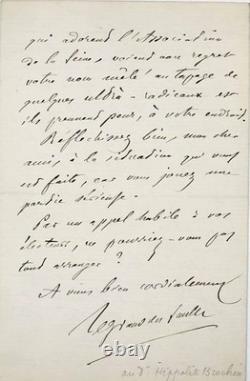 qui adorent l'Association
de la Seine, voient non regret
votre nom mêlé au tapage de
quelques ultra-radicaux est
ils prennent pour, à votre endroit.
Réfléchissez bien, mon cher
ami, à la situation qui vous
est faite, car vous jouez une
partie sérieuse.
Par un appel habile à vos
électeurs, ne pourriez-vous pas
tout arranger ?
A vous bien cordialement
Legrand du Saulle
au Dr Hippolyte Brochin